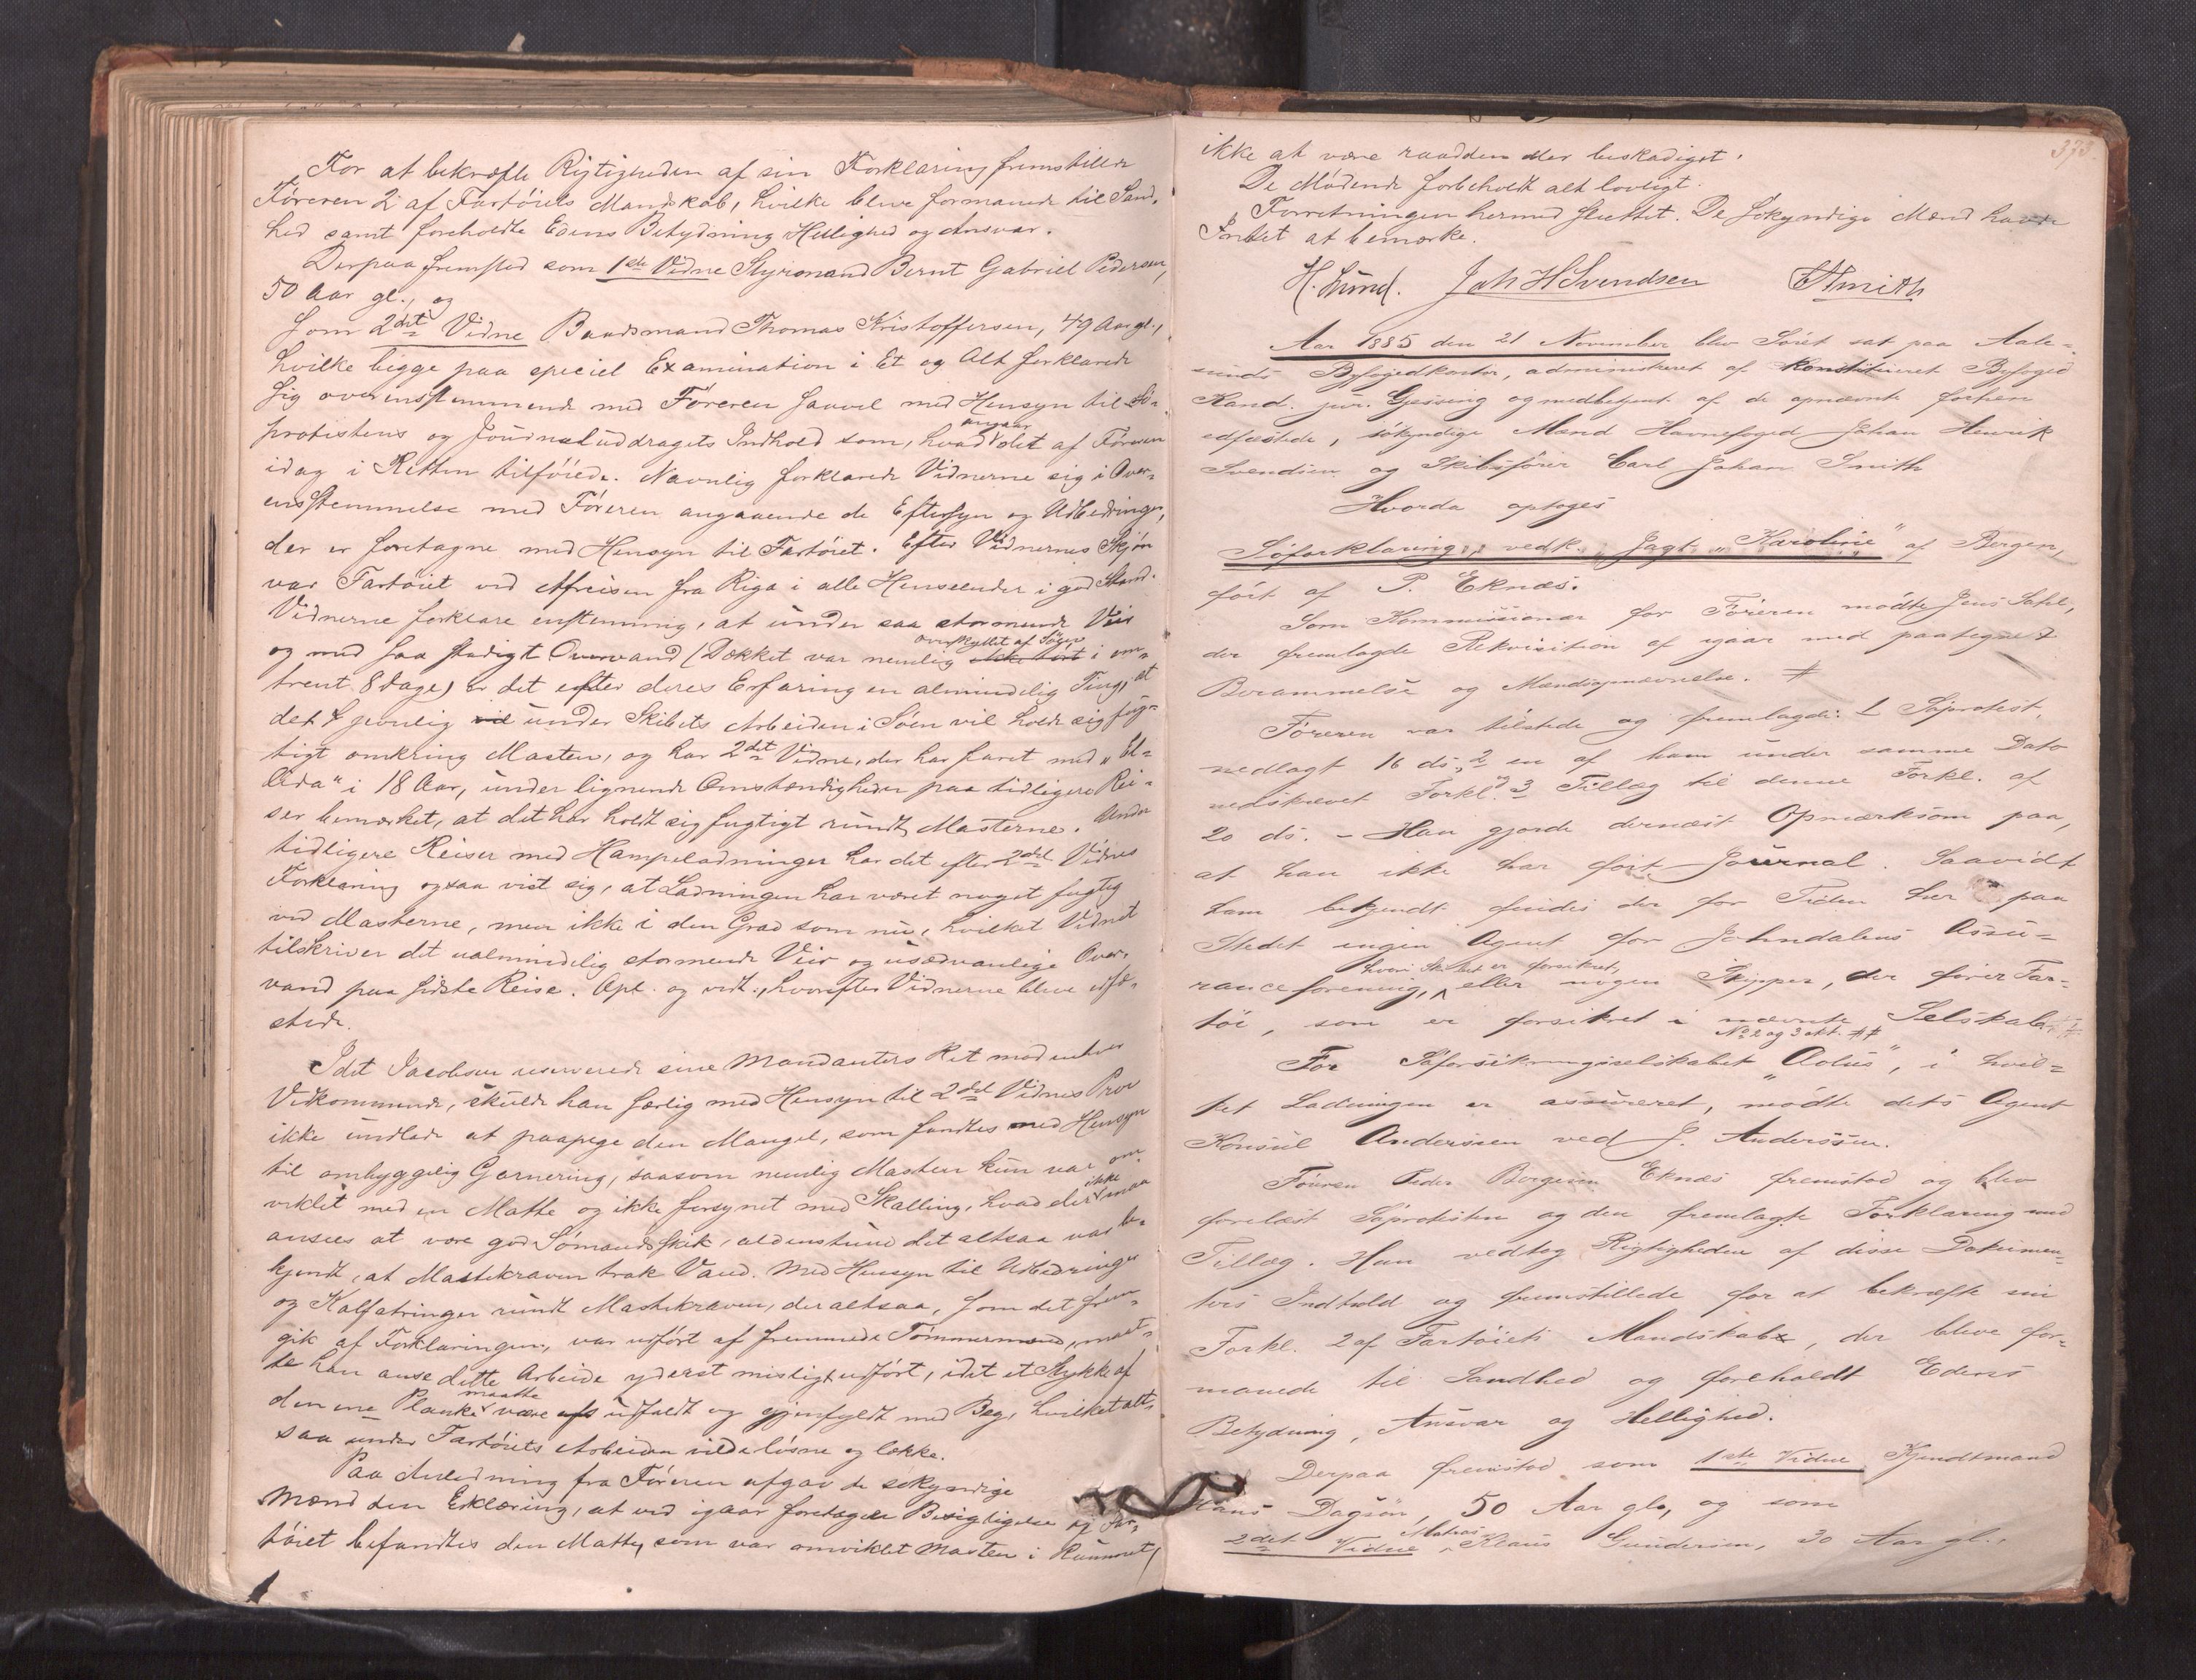 For at bekræfte Rigtigheden af sin Forklaring fremstillede
Føreren 2 af Fartøiets Mandskab, hvilke bleve formanede til Sand-
hed samt foreholdte Edens Betydning Hellighed og Ansvar.
Derpaa fremstod som 1ste Vidne Styrmand Bernt Gabriel Pedersen,
50 Aar gl., og
som 2det Vidne Baadsmand Thomas Kristoffersen, 49 Aar gl.,
hvilke begge paa speciel Examination i Et og Alt forklarede
sig overensstemmende med Føreren saavel med Hensyn til Sø-
protestens og Journaluddragets Indhold som, hvad angaar det af Føreren
idag i Retten tilførte. Navnlig forklarede Vidnerne sig i Over-
ensstemmelse med Føreren angaaende de Eftersyn og Udbedringer,
der er foretagne med Hensyn til Fartøiet. Efter Vidnernes Skjøn
var Fartøiet ved Afreisen fra Riga i alle Henseender i god Stand.
Vidnerne forklare enstemmig, at under saa stormende Veir
og med saa stadigt Overvand (Dækket var nemlig overskyllet af Søen i om-
trent 8 Dage) er det efter deres Erfaring en almindelig Ting, at
det jevnlig under Skibets Arbeiden i Søen vil holde sig fug-
tigt omkring Masten, og har 2det Vidne, der har faret med „El-
lida“ i 18 Aar, under lignende Omstændigheder paa tidligere Rei-
ser bemærket, at det har holdt sig fugtigt rundt Masterne. Under
tidligere Reiser med Hampeladninger har det efter 2det Vidnes
Forklaring ogsaa vist sig, at Ladningen har været noget fugtig
ved Masterne, men ikke i den Grad som nu, hvilket Vidnet
tilskriver det ualmindelig stormende Veir og usædvanlige Over-
vand paa sidste Reise. Opl. og vedt., hvorefter Vidnerne bleve edfæ-
stede.
Idet Jacobsen reserverede sine Mandanters Ret mod enhver
Vedkommende, skulde han særlig med Hensyn til 2det Vidnes Prov
ikke undlade at paapege den Mangel, som fandtes med Hensyn
til omhyggelig Garnering, saasom nemlig Masten kun var om-
viklet med en Matte og ikke forsynet med Skalling, hvad der ikke maa
ansees at være god Sømandsskik, aldenstund det altsaa var be-
kjendt, at Mastekraven trak Vand. Med Hensyn til Udbedringer
og Kalfatringer rundt Mastekraven, der altsaa, som det frem-
gik af Forklaringen, var udført af fremmede Tømmermænd, maat-
te han anse dette Arbeide yderst misligt udført, idet et Stykke af
den ene Planke maatte være udfaldt og gjenfyldt med Beg, hvilket alt-
saa under Fartøiets Arbeiden vilde løsne og lække.
Paa Anledning fra Føreren afgav de søkyndige
Mænd den Erklæring, at ved igaar foretagne Besigtigelse af Far-
tøiet befandtes den Matte, som var omviklet Masten i Rummet,
373.
ikke at være raadden eller beskadiget.
De Mødende forbeholdt alt lovligt.
Forretningen hermed sluttet. De søkyndige Mænd havde
Intet at bemærke.
H. Lund. Joh H Svendsen C Smith
Aar 1885 den 21 November blev Søret sat paa Aale-
sunds Byfogedkontor, administreret af konstitueret Byfoged
Kand. jur. Gjessing og medbetjent af de opnævnte forhen
edfæstede, søkyndige Mænd Havnefoged Johan Henrik
Svendsen og Skibsfører Carl Johan Smith
Hvorda optoges
Søforklaring, vedk. Jagt „Karoline“ af Bergen,
ført af P. Eknæs.
Som Kommissionær for Føreren mødte Jens Dahl,
der fremlagde Rekvisition af igaar med paategnet
Berammelse og Mændsopnævnelse. #
Føreren var tilstede og fremlagde: 1 Søprotest,
nedlagt 16 ds, 2 en af ham under samme Dato
nedskrevet Forkl. og 3 Tillæg til denne Forkl. af
20 ds. – Han gjorde dernæst Opmærksom paa,
at han ikke har ført Journal. Saavidt
ham bekjendt findes der for Tiden her paa
Stedet ingen Agent for Johndalens Assu-
ranceforening, hvori Skibet er forsikret, eller nogen Skipper, der fører Far-
tøi, som er forsikret i nævnte Selskab.
No 2 og 3 akt. ##
For Søforsikringsselskabet „Æolus“, i hvil-
ket Ladningen er assureret, mødte dets Agent
Konsul Anderssen ved J. Anderssen.
Føreren Peder Borgesen Eknæs fremstod og blev
forelæst Søprotesten og den fremlagte Forklaring med
Tillæg. Han vedtog Rigtigheden af disse Dokumen-
ters Indhold og fremstillede for at bekræfte sin
Forkl. 2 af Fartøiets Mandskab, der bleve for-
manede til Sandhed og foreholdt Edens
Betydning, Ansvar og Hellighed.
Derpaa fremstod som 1ste Vidne Kjendtmand
Hans Dagsøn, 50 Aar gl., og som
2det Vidne Matros Klaus Gundersen, 30 Aar gl.,